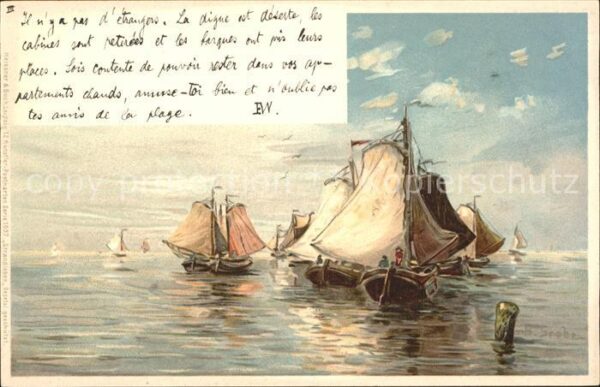 III
Il n'y a pas d'étrangers. La digue est déserte, les
cabines sont retirées et les barques ont pris leurs
places. Sois contente de pouvoir rester dans vos ap-
partements chauds, amuse-toi bien et n'oublie pas
tes amis de la plage. EW.
copyright protected Kopierschutz